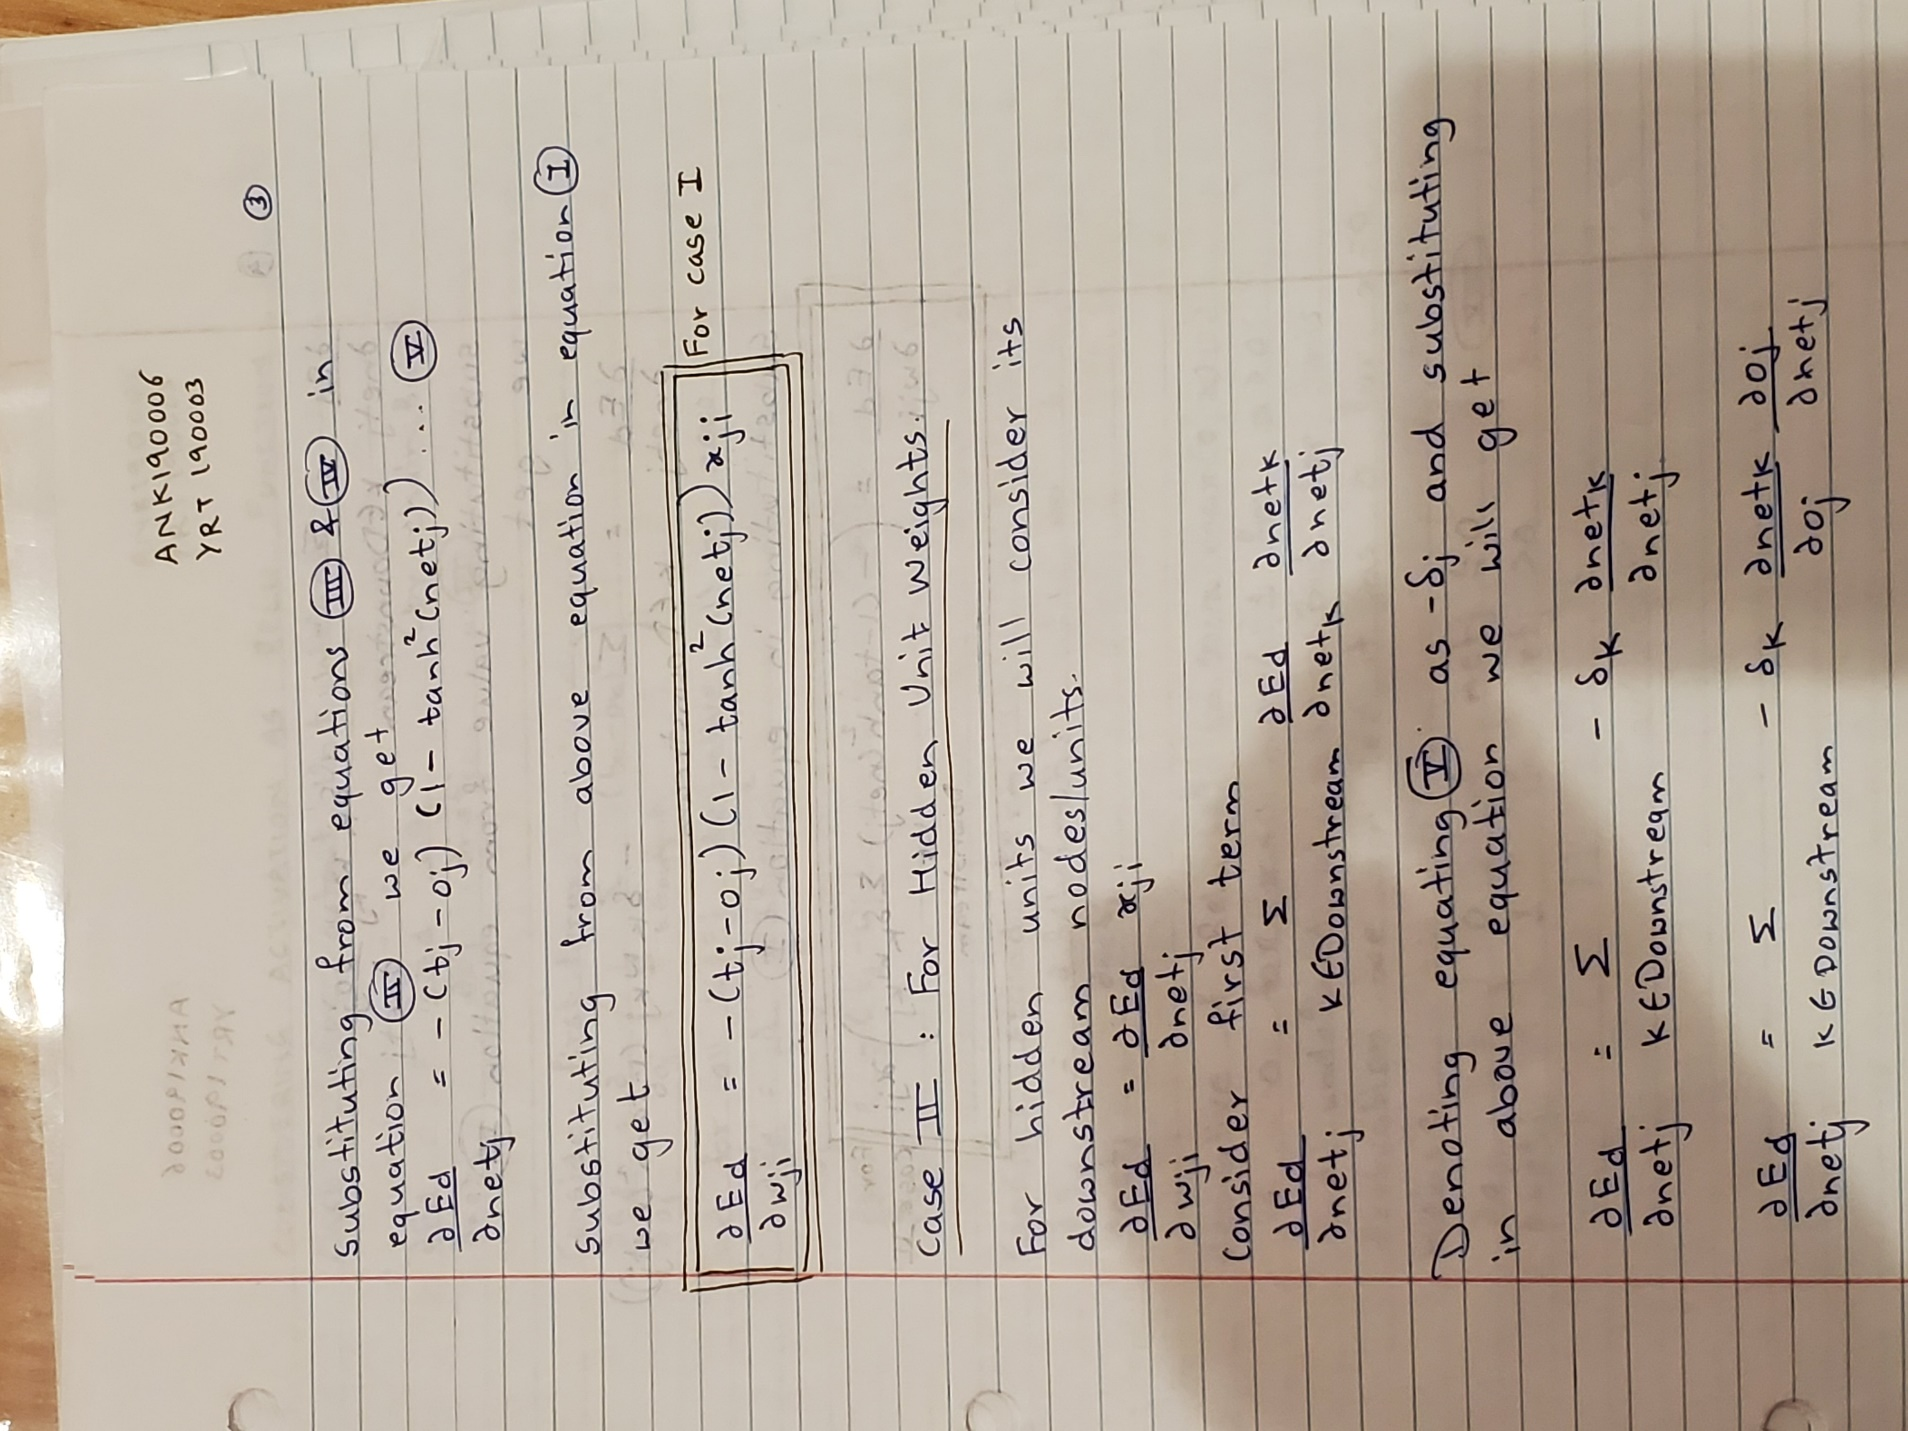 ANK190006
YRT 190003
③
Substituting from equations (III) & (IV) in
equation (II) we get
∂Ed/∂netj = -(tj-oj) (1- tanh²(netj)) ... (V)
Substituting from above equation in equation (I)
we get
∂Ed/∂wji = -(tj-oj) (1- tanh²(netj)) xji For case I
Case II : For Hidden Unit weights.
For hidden units we will consider its
downstream nodes/units.
∂Ed/∂wji = ∂Ed/∂netj xji
Consider first term
∂Ed/∂netj = Σ k∈Downstream ∂Ed/∂netk ∂netk/∂netj
Denoting equating (V) as -δj and substituting
in above equation we will get
∂Ed/∂netj = Σ k∈Downstream - δk ∂netk/∂netj
∂Ed/∂netj = Σ k∈Downstream - δk ∂netk/∂oj ∂oj/∂netj